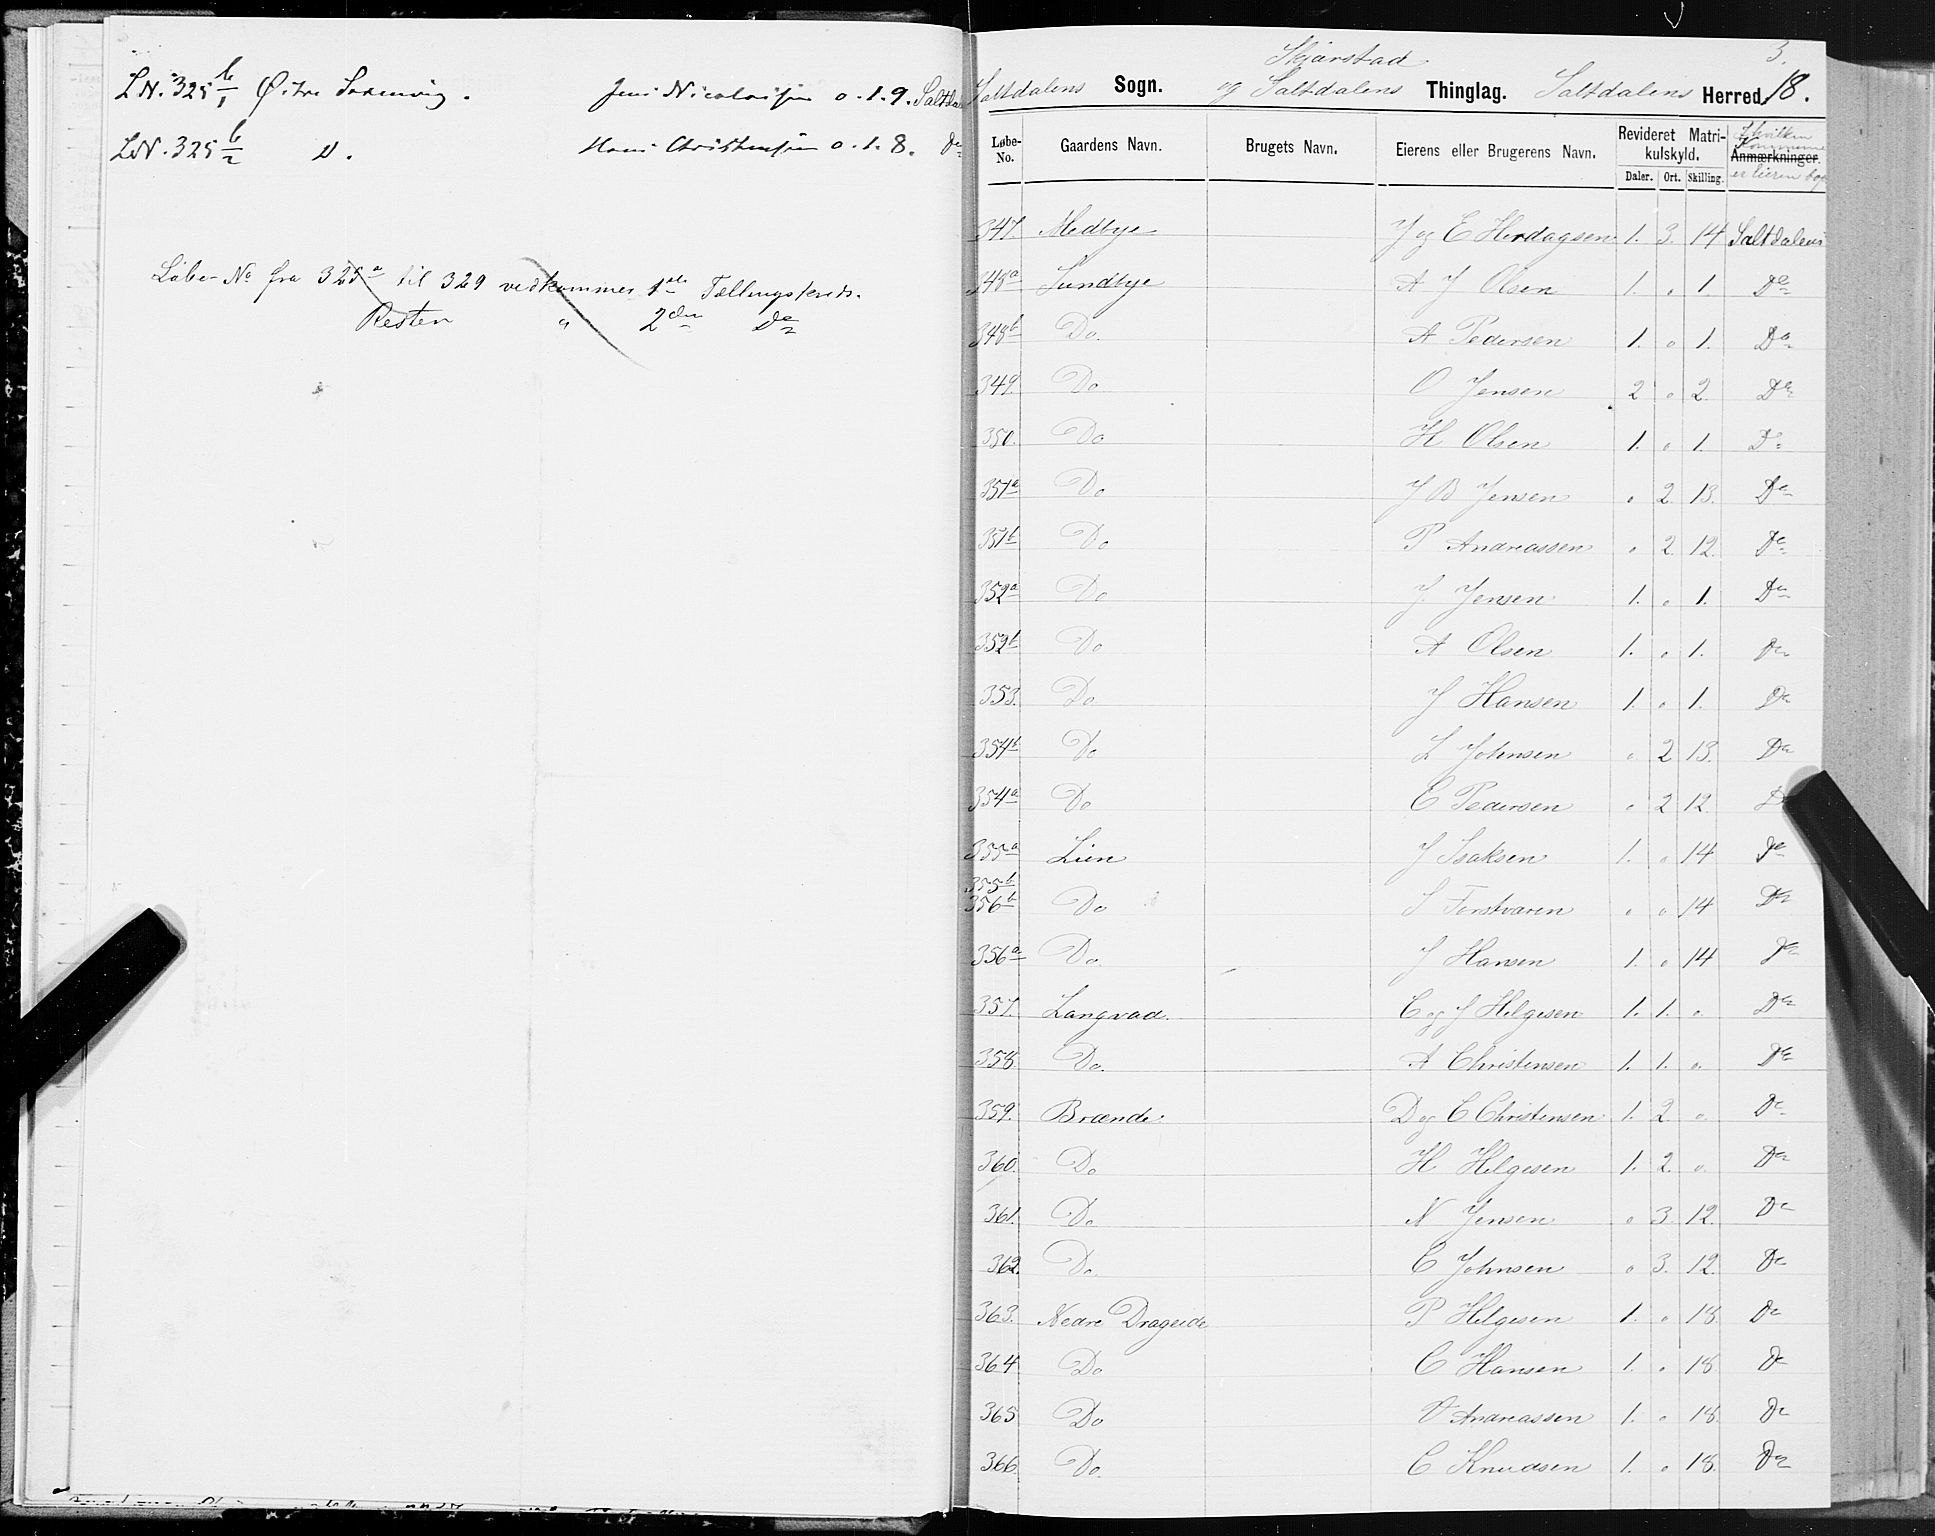 LN. 325 b/1 Østre Saxenvig. Jens Nicolaisen 0.1.9. Saltdalen
LN. 325 b/2 D. Hans Christensen 0.1.8. Do
Løbe-No fra 325a til 329 vedkommer 1ste Tællingskreds.
Resten " 2den Do
3.
18.
Skjerstad
Saltdalens Sogn. og Saltdalens Thinglag. Saltdalens Herred.
Løbe-No. Gaardens Navn. Brugets Navn. Eierens eller Brugerens Navn. Revideret Matrikulskyld. Daler. Ort. Skilling. Anmærkninger. I hvilken Kommune er Eieren bo
347. Medbye J og E Herdagsen 1. 3. 14 Saltdalens
348a Sundbye A J Olsen 1. " 1. Do
348b Do. A Pedersen 1. " 1. Do
349. Do O Jensen 2 " 2. Do
350. Do H Olsen 1. " 1. Do
351a Do J B Jensen " 2. 13. Do
351b Do P Andreassen " 2 12. Do
352a Do J. Jensen 1. " 1. Do
352b Do A Olsen 1. " 1. Do
353. Do J Hansen 1. " 1. Do
354b Do L Johnsen " 2 13. Do
354a Do E Pedersen " 2 12 Do
355a Lien J Isaksen 1. " 14 Do
355b
356b Do S Forstvaren " " 14 Do
356a Do. J Hansen 1. " 14 Do
357. Langvad. C og J Helgesen 1. 1. " Do
358. Do. A Christensen 1. 1. " Do
359. Brænde D og C Christensen 1. 2. " Do
360. Do H Helgesen 1. 2. " Do
361. Do N Jensen " 3. 12. Do
362. Do. C Johnsen " 3. 12. Do
363. Nedre Drageide P Helgesen 1. " 18. Do
364 Do C Hansen 1. " 18 Do
365 Do O Andreassen 1. " 18. Do
366. Do. C Knudsen 1. " 18. Do